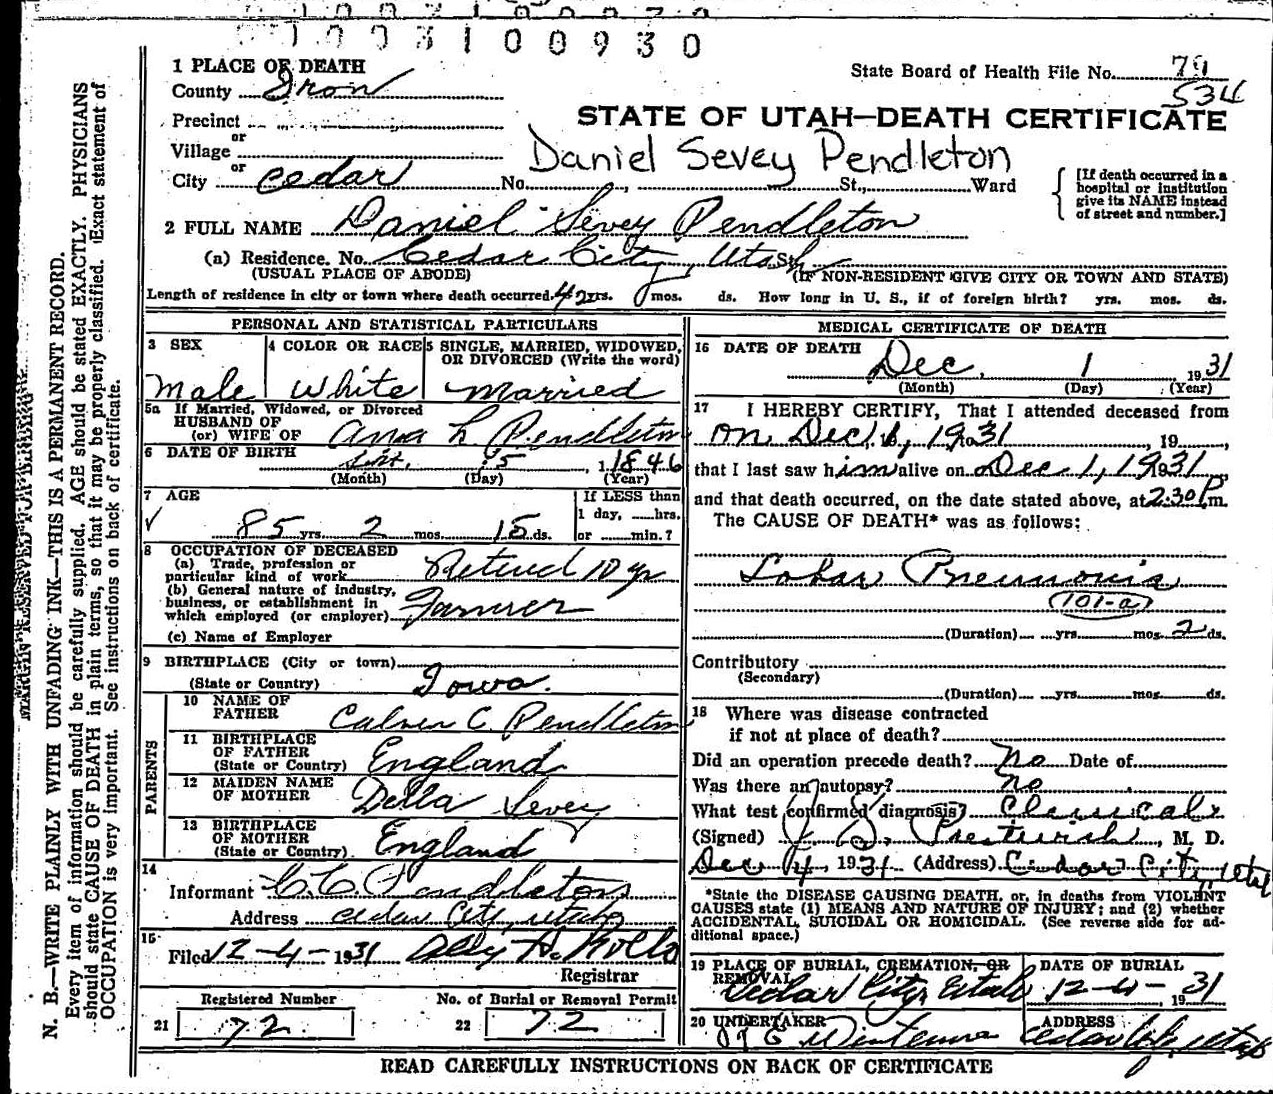 1003100930
1 PLACE OF DEATH
County Iron
State Board of Health File No. 79
534
STATE OF UTAH—DEATH CERTIFICATE
Precinct
or
Village
or
City Cedar No. , St., Ward
Daniel Sevey Pendleton
[If death occurred in a
hospital or institution
give its NAME instead
of street and number.]
2 FULL NAME Daniel Sevey Pendleton
(a) Residence. No. Cedar City, Utah St.
(USUAL PLACE OF ABODE) (IF NON-RESIDENT GIVE CITY OR TOWN AND STATE)
Length of residence in city or town where death occurred. 42 yrs. 0 mos. ds. How long in U. S., if of foreign birth? yrs. mos. ds.
PERSONAL AND STATISTICAL PARTICULARS
3 SEX
Male
4 COLOR OR RACE
White
5 SINGLE, MARRIED, WIDOWED,
OR DIVORCED (Write the word)
Married
5a If Married, Widowed, or Divorced
HUSBAND OF
(or) WIFE OF Ana L Pendleton
6 DATE OF BIRTH 15, 1846
(Month) (Day) (Year)
7 AGE
85 yrs. 2 mos. 15 ds.
If LESS than
1 day, hrs.
or min.?
8 OCCUPATION OF DECEASED
(a) Trade, profession or
particular kind of work Retired 10 yr
(b) General nature of industry,
business, or establishment in
which employed (or employer) Farmer
(c) Name of Employer
9 BIRTHPLACE (City or town)
(State or Country) Iowa.
PARENTS
10 NAME OF
FATHER Calvin C. Pendleton
11 BIRTHPLACE
OF FATHER
(State or Country) England
12 MAIDEN NAME
OF MOTHER Della Sevey
13 BIRTHPLACE
OF MOTHER
(State or Country) England
14
Informant C. C. Pendleton
Address Cedar City, Utah
15
Filed 12-4-1931
Registrar
Registered Number
21 72
No. of Burial or Removal Permit
22 72
MEDICAL CERTIFICATE OF DEATH
16 DATE OF DEATH
Dec. 1 1931
(Month) (Day) (Year)
17 I HEREBY CERTIFY, That I attended deceased from
on Dec 1, 1931 , 19 ,
that I last saw him alive on Dec 1, 1931
and that death occurred, on the date stated above, at 2:30 P.m.
The CAUSE OF DEATH* was as follows:
Lobar Pneumonia
101-a
(Duration) yrs. mos. 2 ds.
Contributory
(Secondary)
(Duration) yrs. mos. ds.
18 Where was disease contracted
if not at place of death?
Did an operation precede death? No Date of
Was there an autopsy? no
What test confirmed diagnosis? Clinical
(Signed) , M. D.
Dec 4, 1931 (Address) Cedar City, Utah
*State the DISEASE CAUSING DEATH, or, in deaths from VIOLENT
CAUSES state (1) MEANS AND NATURE OF INJURY; and (2) whether
ACCIDENTAL, SUICIDAL OR HOMICIDAL. (See reverse side for ad-
ditional space.)
19 PLACE OF BURIAL, CREMATION, OR
REMOVAL
Cedar City Utah
DATE OF BURIAL
12-4-1931
20 UNDERTAKER
ADDRESS
Cedar City, Utah
READ CAREFULLY INSTRUCTIONS ON BACK OF CERTIFICATE
MARGIN RESERVED FOR BINDING
N. B.—WRITE PLAINLY WITH UNFADING INK—THIS IS A PERMANENT RECORD.
Every item of information should be carefully supplied. AGE should be stated EXACTLY. PHYSICIANS
should state CAUSE OF DEATH in plain terms, so that it may be properly classified. Exact statement of
OCCUPATION is very important. See instructions on back of certificate.